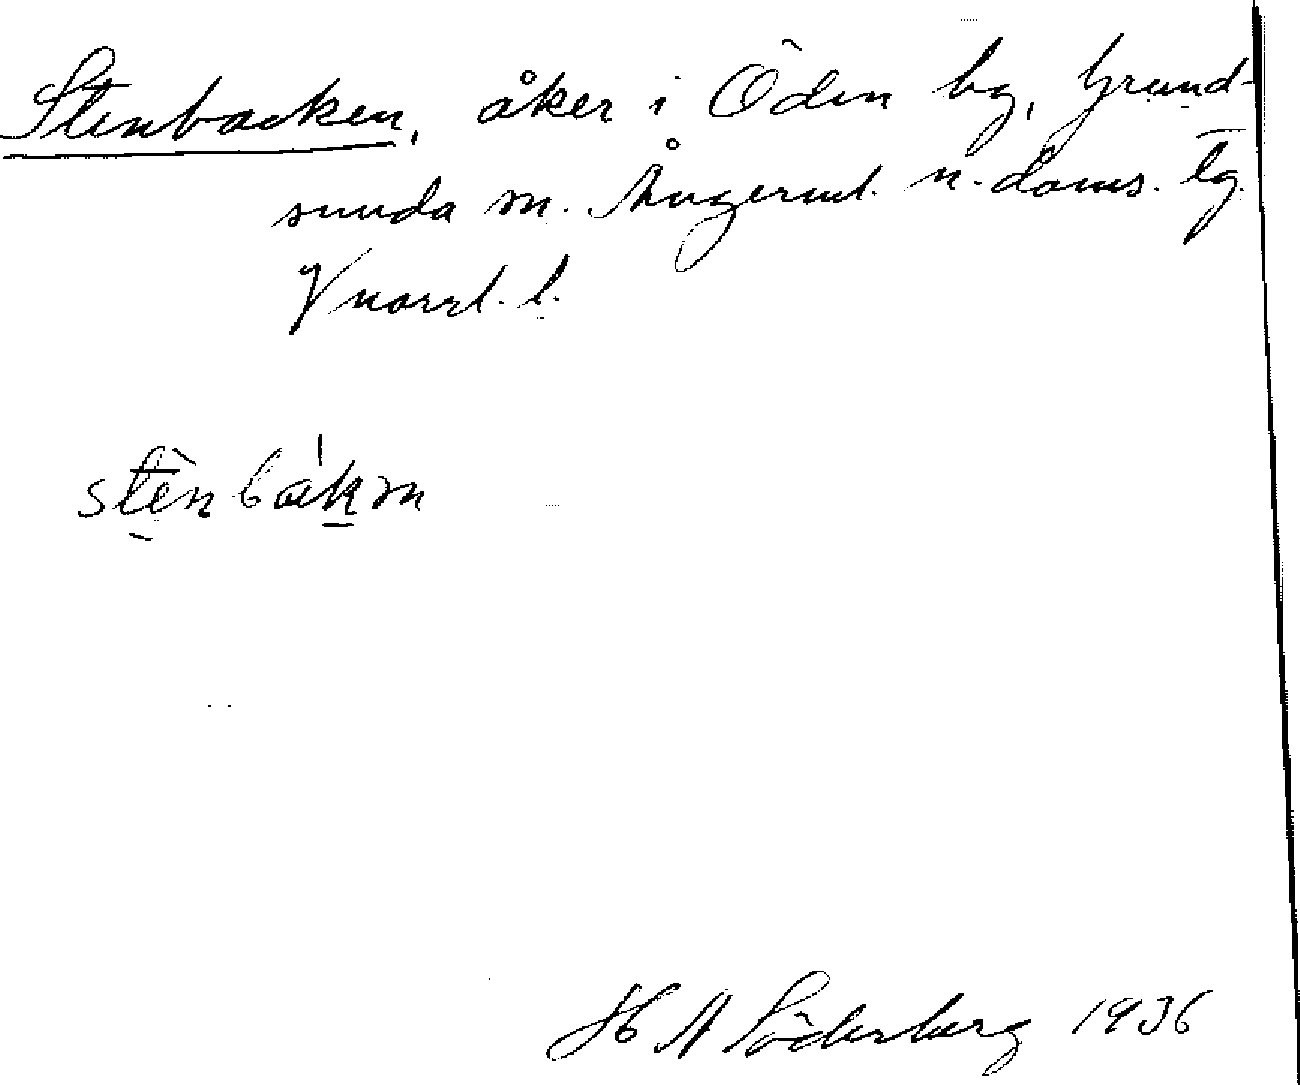 Stenbacken, åker i Öden by, Grund-
sunda sn. Ångerml. n. doms. tg.
Vnorrl. l.
stènbákm
H A Söderberg 1936